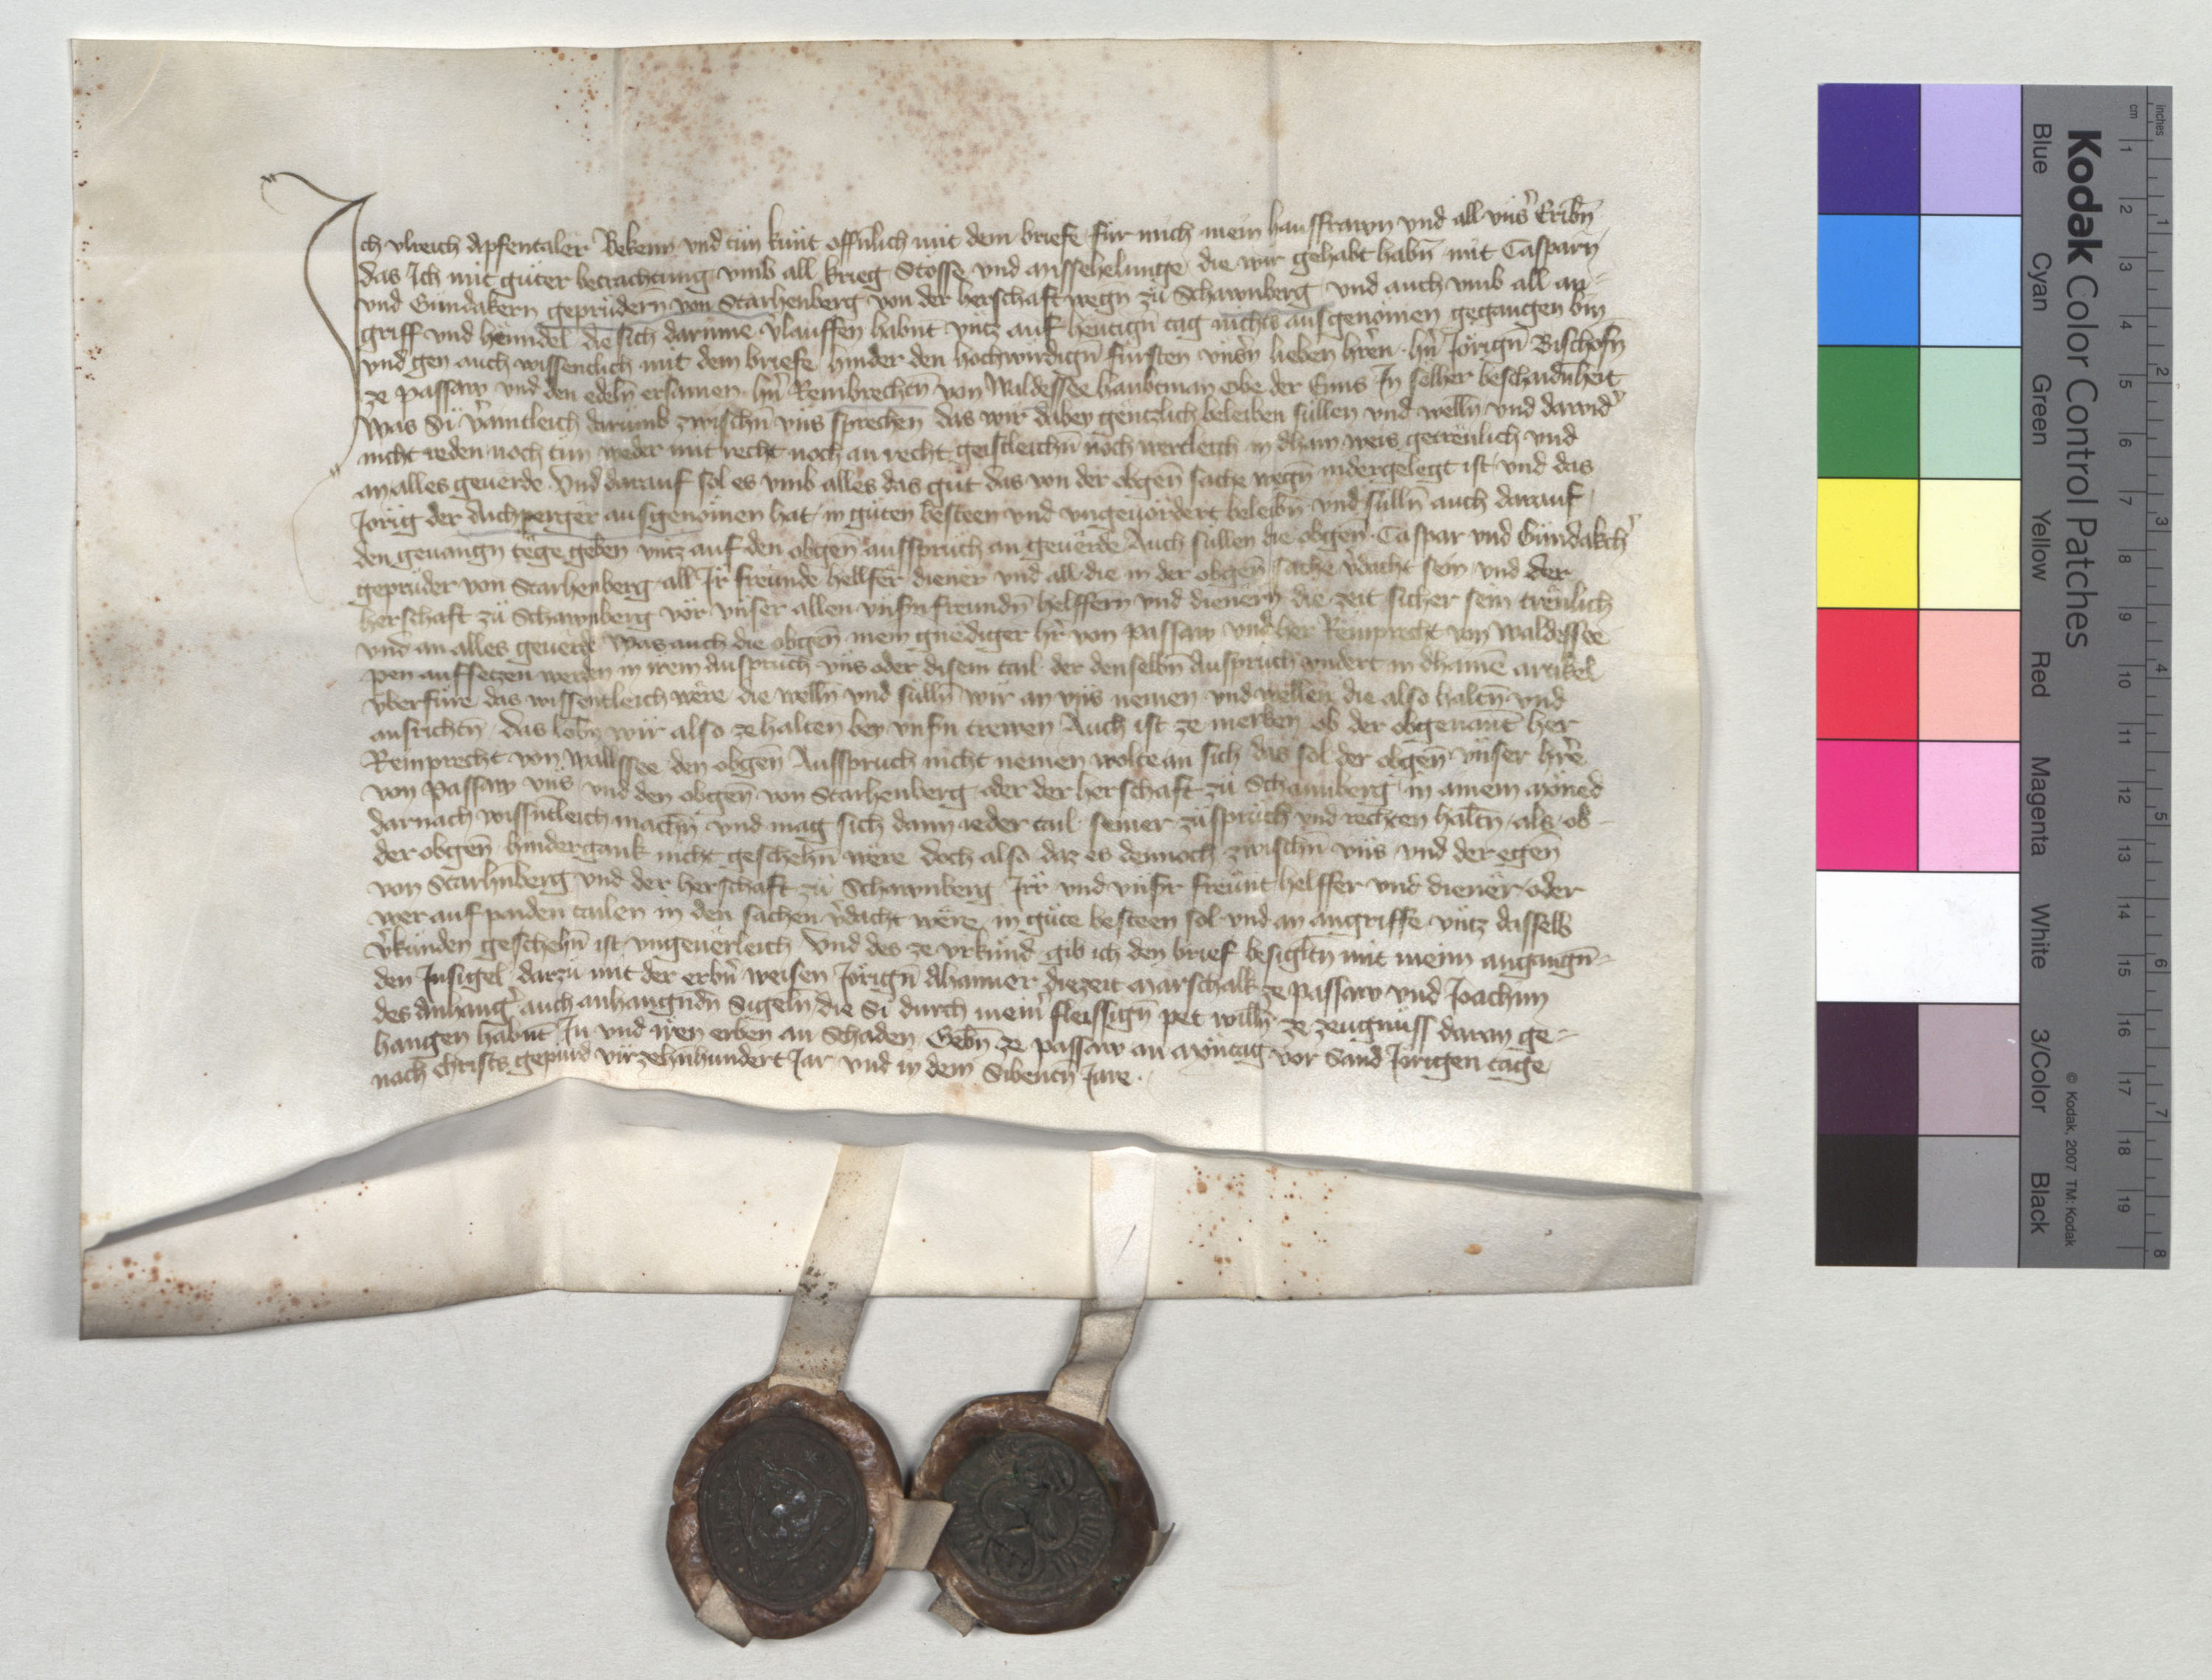 Ich vlreich Apfentaler Bekenn vnd tün künt offnlich mit dem briefe für mich mein hausfrawn vnd all vnsˀ Eribn̄
das Ich mit güter betrachtung vmb all krieg Stösse vnd missehelunge die wir gehabt habn̄ mit Casparn̄
vnd Gündakern geprüdern von Starhenberg von der herschaft wegn̄ zü Schawnberg vnd auch vmb all an-
griff vnd henndel die sich darinne vˀlauffen habnt vntz auf heutign̄ tag nichts ausgenomen gegangen bin
vnd gen auch wissentlich mit dem briefe hinder den hochwirdign̄ fürsten vnsˀn lieben hrˀen hˀn Jörign̄ Bischofn̄
ze passaw vnd den edeln̄ ersamen hˀn Rembrechtn̄ von Waldessee haubtman Obe der Enns In solher beschaidnheit
Was Si vˀaintleich darumb zwischn̄ vns sprechen das wir dabey gentzlich beleiben süllen vnd welln̄ vnd darwidˀ
nicht reden noch tün weder mit recht noch an recht geistleichn̄ noch wertleich in dhain weis getreulich vnd
an alles geuerde Vnd darauf sol es vmb alles das güt das von der obgen̄ sache wegn̄ nidergelegt ist vnd das
Jörig der Aichperger ausgenomen hat in güten besteen vnd vngeuordert beleibn̄ vnd sülln̄ auch darauf
den geuangn̄ tege geben vntz auf den obgen̄ ausspruch an geuerde Auch süllen die obgen̄ Caspar vnd Gündakchˀ
geprüder von Starhenberg all Ir freunde hellfer diener vnd all die in der obgen̄ sache vˀdacht sein vnd der
herschaft zü Schawnberg vor vnser allen vnsˀn freundn̄ helffern vnd dienern die zeit sicher sein treulich
vnd an alles geuerde Was auch die obgen̄ mein gnediger hrˀ von passaw vnd her Remprecht von Waldessee
pen aufsetzen werden in irem Auspruch vns oder disem tail der denselbn̄ Auspruch indert in dhainē artikel
vberfüre das wissentleich were die welln̄ vnd sülln̄ wir an vns nemen vnd wellen die also haltn̄ vnd
ausrichtn̄ das lobn̄ wir also ze halten bey vnsˀn trewen Auch ist ze merken ob der obgenant her
Remprecht von Wallssee den obgen̄ Ausspruch nicht nemen wolte an sich das sol der obgen̄ vnser hrˀe
von passaw vns vnd den obgen̄ von Starhenberg oder der herschaft zü Schaunberg in ainem moned
darnach wissntleich machn̄ vnd mag sich dann ieder tail seiner züsprüch vnd rechten haltn̄ als ob
der obgen̄ hindergank nicht geschehn̄ were doch also daz es dennoch zwischn̄ vns vnd der egen̄
von Starhnberg vnd der herschaft zü Schawnberg Irˀ vnd vnsˀr freunt helffer vnd diener oder
wer auf paiden tailen in den sachen vˀdacht were in güte besteen sol vnd an angriffe vntz dasselb
vˀkünden geschehn̄ ist vngeuerleich Vnd des ze vrkünd gib ich den brief besigltn̄ mit meinn angangn̄-
den Insigel darzü mit der erbˀn weisen Jörign̄ Ahaimer diezeit Marschalk ze passaw vnd Joachim
des Anhangˀ auch anhangundn̄ Sigeln̄ die Si durch meinˀ fleissign̄ pet willn̄ ze zeugnüss daran ge-
hangen habnt In vnd iren erben an Schaden Gebn̄ ze passaw an Mōntag vor Sand Jörigen tage
nach Christs gepurd virzehnhundert Jar vnd in dem Sibentn̄ Jare.
Kodak Color Control Patches
Blue Cyan Green Yellow Red Magenta White 3/Color Black
© Kodak, 2007 TM: Kodak
cm 1 2 3 4 5 6 7 8 9 10 11 12 13 14 15 16 17 18 19
inches 1 2 3 4 5 6 7 8